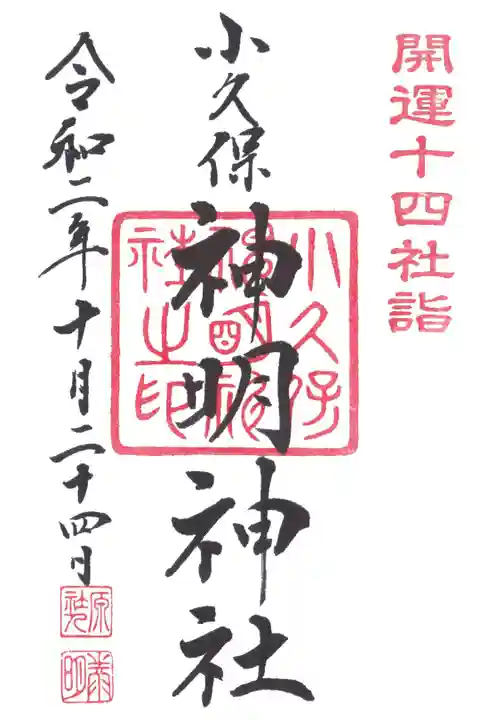 開運十四社詣
小久保
神明神社
小久保
神明神
社之印
令和二年十月二十四日